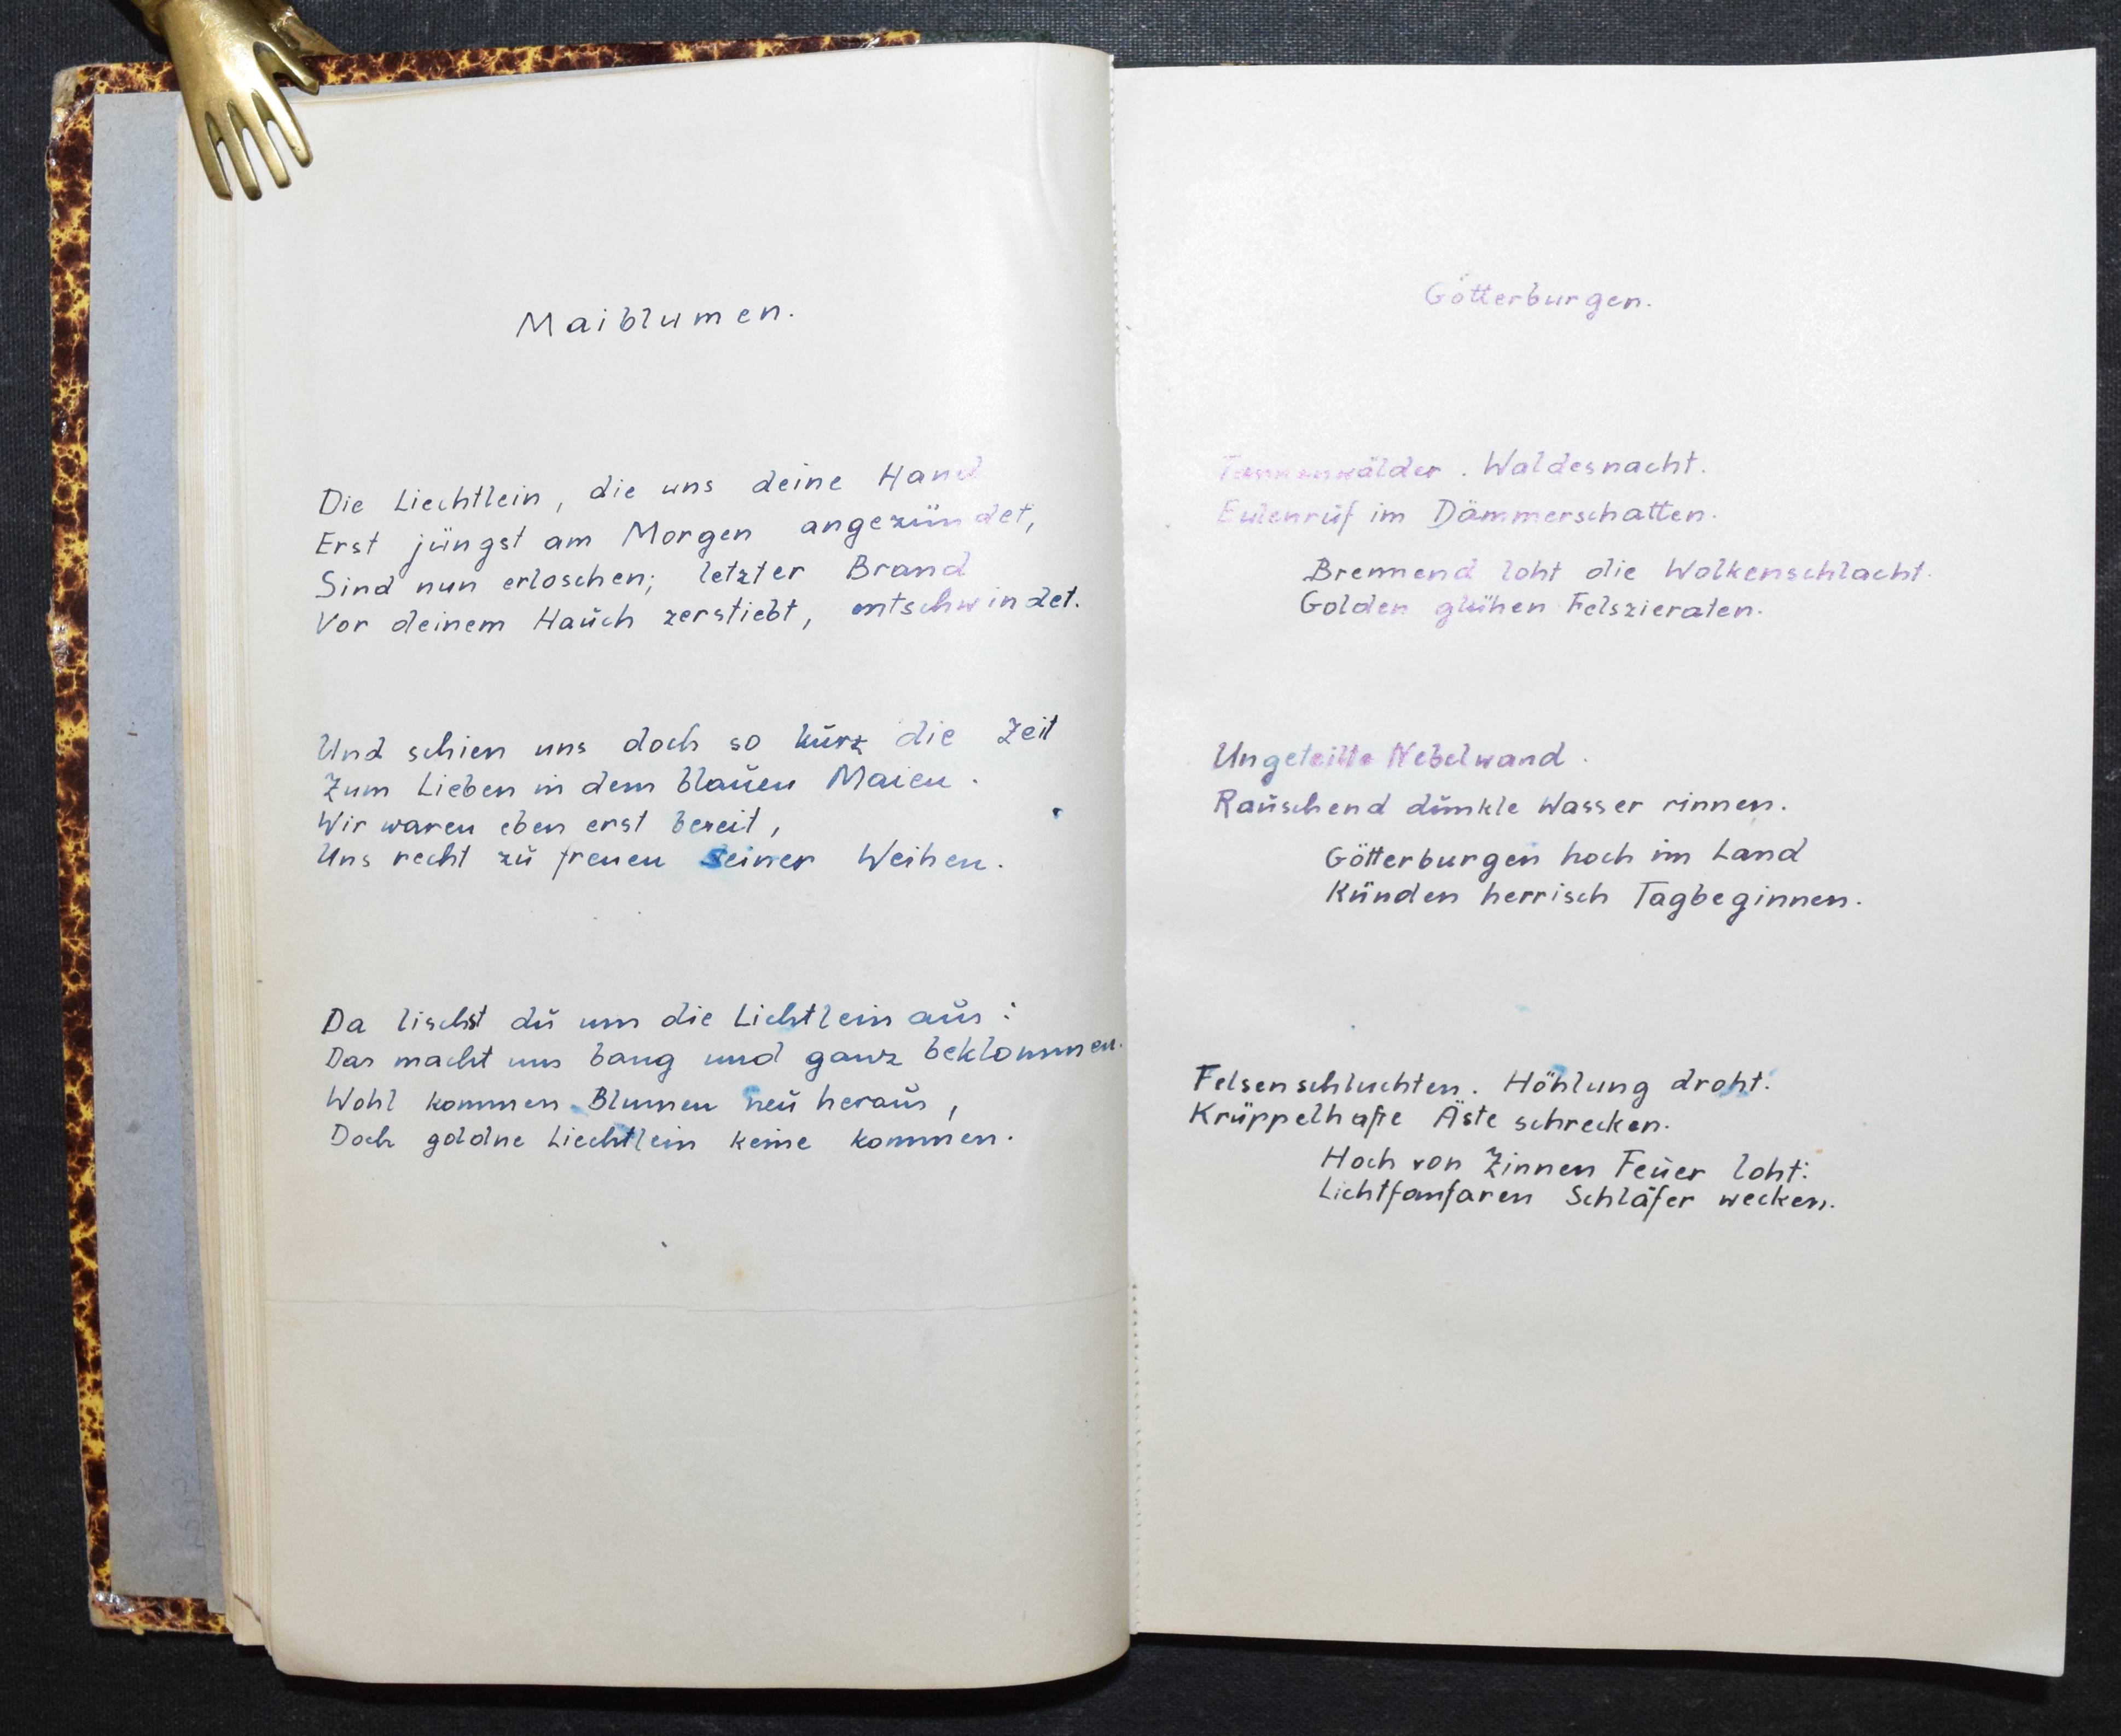 Maiblumen.
Die Liechtlein, die uns deine Hand
Erst jüngst am Morgen angezündet,
Sind nun erloschen; letzter Brand
Vor deinem Hauch zerstiebt, entschwindet.
Und schien uns doch so kurz die Zeit
Zum Lieben in dem blauen Maien.
Wir waren eben erst bereit,
Uns recht zu freuen seiner Weihen.
Da lischst du um die Lichtlein aus:
Das macht uns bang und ganz beklommen.
Wohl kommen Blumen neu heraus,
Doch goldne Liechtlein keine kommen.
Götterburgen.
Tannenwälder. Waldesnacht.
Eulenruf im Dämmerschatten.
Brennend loht die Wolkenschlacht.
Golden glühen Felszieraten.
Ungeteilte Nebelwand.
Rauschend dunkle Wasser rinnen.
Götterburgen hoch im Land
Künden herrisch Tagbeginnen.
Felsenschluchten. Höhlung droht.
Krüppelhafte Äste schrecken.
Hoch von Zinnen Feuer loht:
Lichtfanfaren Schläfer wecken.